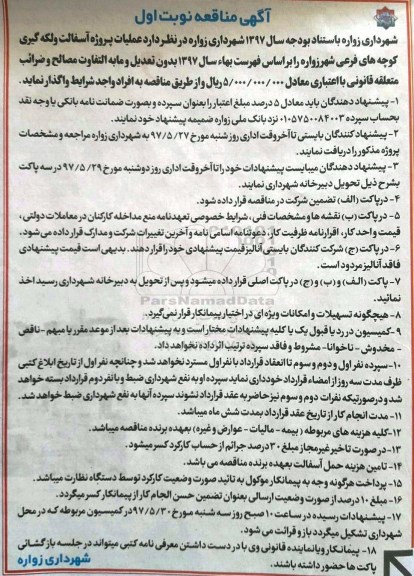 آگهی مناقصه نوبت اول
شهرداری زواره باستناد بودجه سال ۱۳۹۷ شهرداری زواره در نظر دارد عملیات پروژه آسفالت ولکه گیری
کوچه های فرعی شهر زواره را بر اساس فهرست بهاء سال ۱۳۹۷ بدون تعدیل و مابه التفاوت مصالح و ضرائب
متعلقه قانونی با اعتباری معادل ۵/۰۰۰/۰۰۰/۰۰۰ ریال و از طریق مناقصه به افراد واجد شرایط واگذار نماید.
۱- پیشنهاد دهندگان باید معادل ۵ درصد مبلغ اعتبار را بعنوان سپرده و بصورت ضمانت نامه بانکی یا وجه نقد
بحساب سپرده ۰۱۰۵۷۵۰۰۸۴۰۰۳ نزد بانک ملی زواره ضمیمه پیشنهاد خود نمایند.
۲- پیشنهاد کنندگان بایستی تا آخر وقت اداری روز شنبه مورخ ۹۷/۵/۲۷ به شهرداری زواره مراجعه و مشخصات
پروژه مذکور را دریافت نمایند.
۳- پیشنهاد دهندگان میبایست پیشنهادات خود را تا آخر وقت اداری روز دوشنبه مورخ ۹۷/۵/۲۹ در سه پاکت
بشرح ذیل تحویل دبیرخانه شهرداری نمایند.
۴- در پاکت (الف) تضمین شرکت در مناقصه قرار داده شود.
۵- در پاکت (ب) نقشه ها و مشخصات فنی، شرایط خصوصی تعهدنامه منع مداخله کارکنان در معاملات دولتی،
قیمت واحد کار، اقرارنامه ظرفیت کار، دعوتنامه اساس نامه و آخرین تغییرات شرکت و مدارک قرار داده می شود.
۶- در پاکت (ج) شرکت کنندگان بایستی آنالیز قیمت پیشنهادی خود را قرار دهند. بدیهی است قیمت پیشنهادی
فاقد آنالیز مردود است.
۷- پاکت (الف) و (ب) و (ج) در پاکت اصلی قرار داده میشود و پس از تحویل به دبیرخانه شهرداری رسید اخذ
نمائید.
۸- هیچگونه تسهیلات و امکانات ویژه ای در اختیار پیمانکار قرار نمی گیرد.
۹- کمیسیون در رد یا قبول یک یا کلیه پیشنهادات مختار است و به پیشنهادات بعد از موعد مقرر یا مبهم - ناقص
- مخدوش - ناخوانا - مشروط و فاقد سپرده ترتیب اثر داده نخواهد داد.
۱۰- سپرده نفر اول و دوم و سوم تا انعقاد قرارداد با نفر اول مسترد نخواهد شد و چنانچه نفر اول از تاریخ ابلاغ کتبی
ظرف مدت سه روز از امضاء قرارداد خودداری نماید سپرده او به نفع شهرداری ضبط و با نفر دوم قرارداد بسته خواهد
شد و درصورتیکه نفرات دوم و سوم نیز حاضر به عقد قرارداد نشوند سپرده آنها به نفع شهرداری ضبط خواهد شد.
۱۱- مدت انجام کار از تاریخ عقد قرارداد بمدت شش ماه میباشد.
۱۲- کلیه هزینه های مربوطه (بیمه - مالیات - عوارض و غیره) بعهده برنده مناقصه میباشد.
۱۳- در صورت تاخیر غیرمجاز مبلغ ۳۰ درصد جرائم از حساب کارکرد کسر میشود.
۱۴- تامین هزینه حمل آسفالت بعهده برنده مناقصه می باشد.
۱۵- پرداخت هرگونه وجه به پیمانکار موکول به تائید صورت وضعیت کارکرد توسط دستگاه نظارت میباشد.
۱۶- مبلغ ۱۰ درصد از صورت وضعیت ارسالی بعنوان تضمین حسن انجام کار از پیمانکار کسر میگردد.
۱۷- پیشنهادات رسیده در ساعت ۱۰ صبح روز سه شنبه مورخ ۹۷/۵/۳۰ در کمیسیون مربوطه که در محل
شهرداری تشکیل میگردد باز و قرائت می شود.
۱۸- پیمانکار ویا نماینده قانونی وی با در دست داشتن معرفی نامه کتبی میتواند در جلسه بازگشائی
پاکت ها حضور داشته باشند.
شهرداری زواره
ParsNamadData